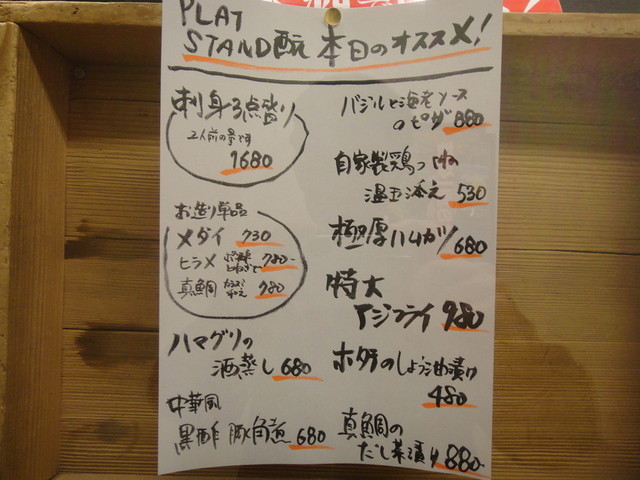 PLAT
STAND酛 本日のオススメ!
刺身3点盛り
2人前の量です
1680
お造り単品
メダイ 730
ヒラメ 780-
真鯛 780
ハマグリの
酒蒸し 680
中華風
黒酢 豚角煮 680
バジルと海老ソース
のピザ 880
自家製鶏つくねの
温玉添え 530
極厚ハムカツ 680
特大
アジフライ 980
ホタテのしょう油漬け
480
真鯛の
だし茶漬け 880-